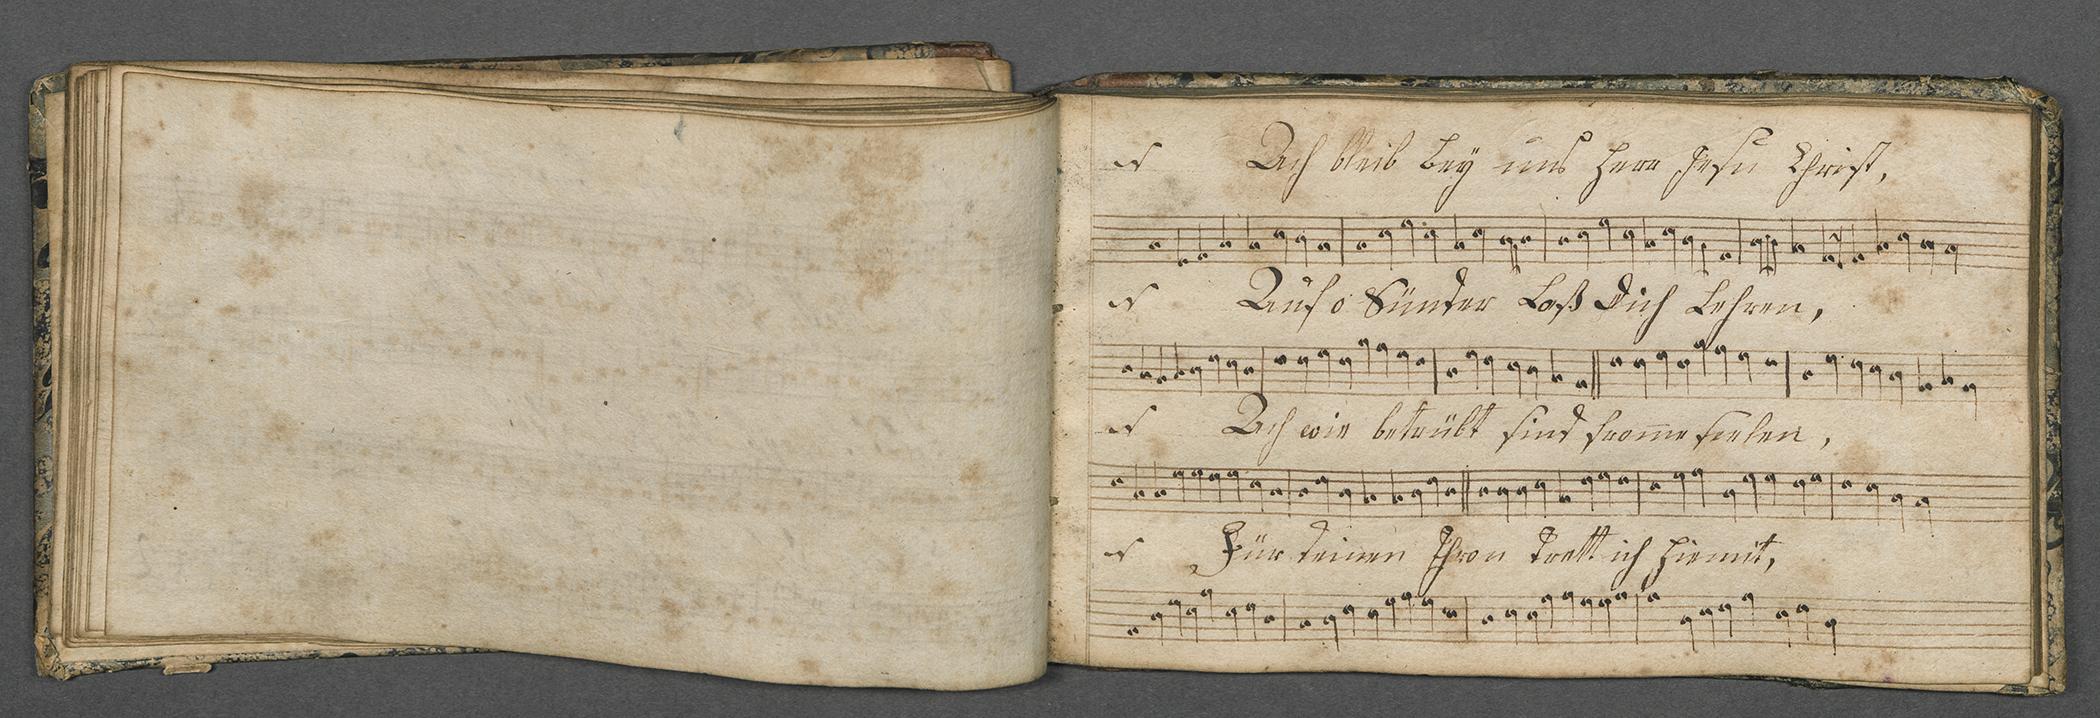 Ach bleib bey uns Herr Jesu Christ,
Auf o Sünder Laß dich Lehren,
Ach wie betrübt sind fromme seelen,
Für deinen Thron drett ich hiemit,